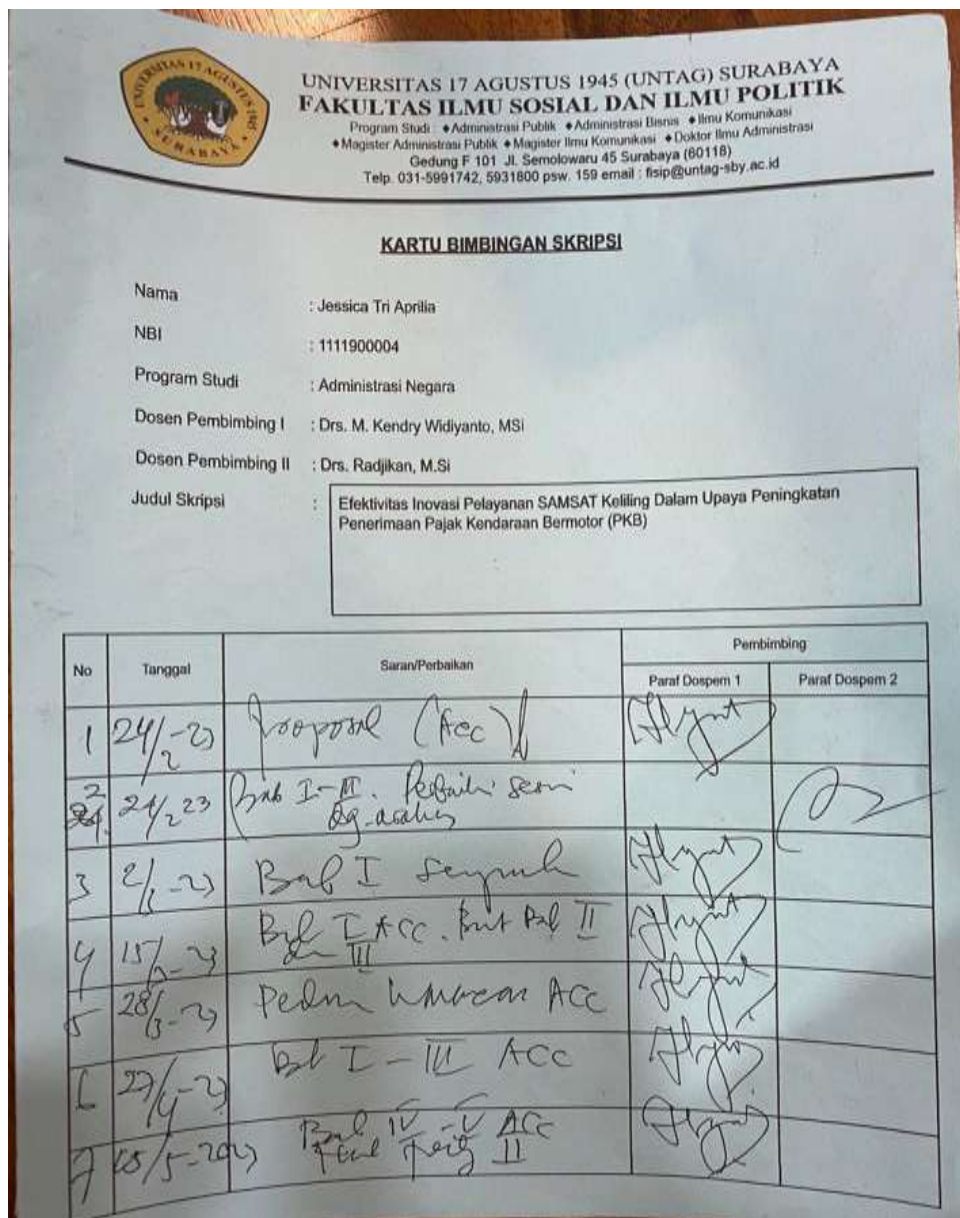 UNIVERSITAS 17 AGUSTUS 1945
SURABAYA
UNIVERSITAS 17 AGUSTUS 1945 (UNTAG) SURABAYA
FAKULTAS ILMU SOSIAL DAN ILMU POLITIK
Program Studi : ♦Administrasi Publik ♦Administrasi Bisnis ♦Ilmu Komunikasi
♦Magister Administrasi Publik ♦Magister Ilmu Komunikasi ♦Doktor Ilmu Administrasi
Gedung F 101 Jl. Semolowaru 45 Surabaya (60118)
Telp. 031-5991742, 5931800 psw. 159 email : fisip@untag-sby.ac.id
KARTU BIMBINGAN SKRIPSI
Nama : Jessica Tri Aprilia
NBI : 1111900004
Program Studi : Administrasi Negara
Dosen Pembimbing I : Drs. M. Kendry Widiyanto, MSi
Dosen Pembimbing II : Drs. Radjikan, M.Si
Judul Skripsi : Efektivitas Inovasi Pelayanan SAMSAT Keliling Dalam Upaya Peningkatan
Penerimaan Pajak Kendaraan Bermotor (PKB)
No Tanggal Saran/Perbaikan Pembimbing
Paraf Dospem 1 Paraf Dospem 2
1 24/2-23 Proposal (Acc)
2 24/2 23 Bab I-III. Perbaiki sesuai
dg. arahan
3 Bab I
4 Bab I ACC. Bab II
III
5 28/3-23 ACC
6 27/4-23 Bab I - III ACC
7 15/5-2023 Bab IV - V ACC
II